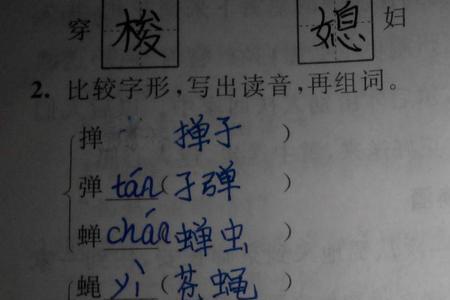 穿 梭 媳 妇
2. 比较字形,写出读音,再组词。
掸 掸子 )
弹 tán (子弹 )
蝉 chán 蝉虫 )
蝇 yì (苍蝇 )